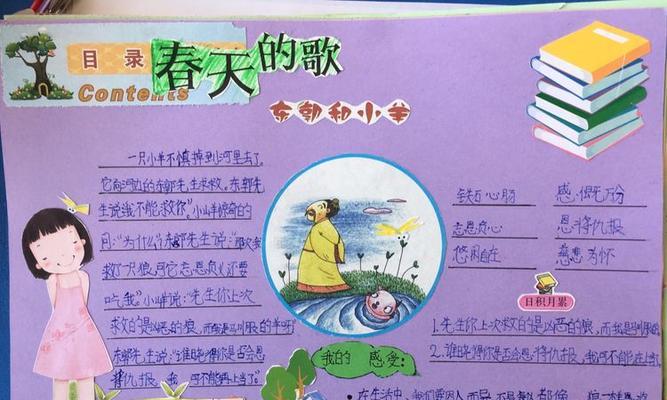 目录
春天的歌
Contents
东郭和小羊
一只小羊不慎掉到河里去了,
它向河边的东郭先生求救。东郭先
生说:"我不能救你"。小山羊惊奇的
问:"为什么"东郭先生说:"那次我
救了只狼,可它忘恩负义还要
吃我。"小羊说:"先生你上次
求救的是凶恶的狼,而我是驯服的羊呀"
东郭先生说:"谁晓得你是否会恩
将仇报,我可不能再上当了。"
铁石心肠 感激万分
忘恩负心 恩将仇报
悠闲自在 慈悲为怀
日积月累
1.先生你上次救的是凶恶的狼,而我是
2.谁晓得你是否会恩将仇报,我可不能在上当
我的感受:
在生活中,我们要因人而异,不是每